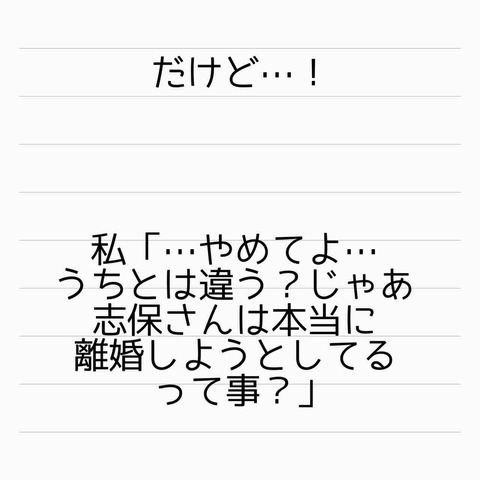 だけど…！
私「…やめてよ…
うちとは違う？じゃあ
志保さんは本当に
離婚しようとしてる
って事？」